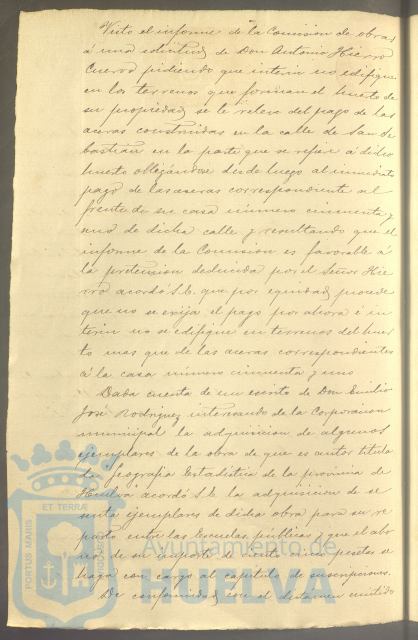 Visto el informe de la Comision de obras
á una solicitud de Don Antonio Hierro
Cuerro pidiendo que interin no edifique
en los terrenos que forman el huerto de
su propiedad se le releve del pago de las
aceras construidas en la calle de San Se
bastian en la parte que se refiere á dicho
huerto obligandose desde luego al inmediato
pago de las aseras correspondiente al
frente de su casa número cincuenta y
uno de dicha calle y resultando que el
informe de la Comision es favorable á
la pretension deducida por el Señor Hie
rro acordó S.E. que por equidad procede
que no se exija el pago por ahora é in
terin no se edifique en terrenos del huer
to mas que de las aceras correspondientes
á la casa número cincuenta y uno
Dada cuenta de un escrito de Don Emilio
José Rodriguez interesando de la Corporacion
municipal la adquisicion de algunos
ejemplares de la obra de que es autor titula
da Geografia Estadística de la provincia de
Huelva acordó S.E. la adquisicion de se
senta ejemplares de dicha obra para su re
parto entre las Escuelas públicas y que el abo
no de su importe de ciento cinco pesetas se
haga con cargo al capitulo de suscripciones.
De conformidad con el dictamen emitido
ET TERRÆ
PORTUS MARIS
CUSTODIA
Ayuntamiento de
HUELVA